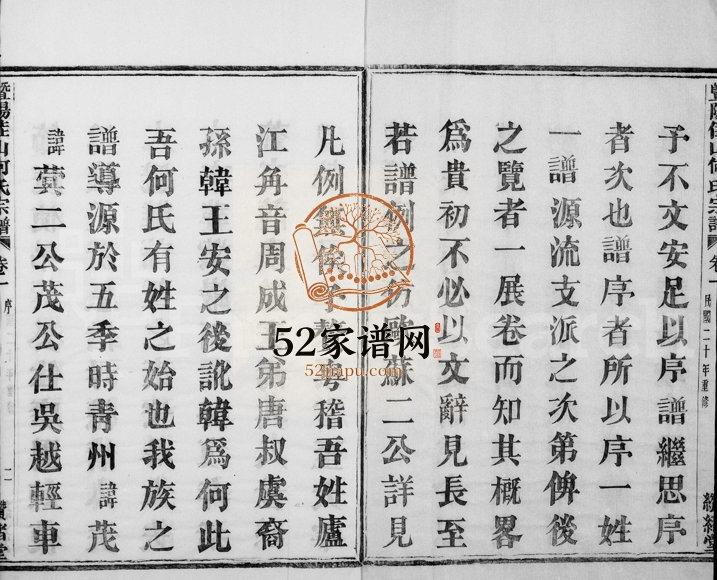 予不文安足以序譜繼思序
者次也譜序者所以序一姓
一譜源流支派之次第俾後
之覽者一展卷而知其概畧
爲貴初不必以文辭見長至
若譜例之仿歐蘇二公詳見
凡例稽吾姓廬
江角音周成王弟唐叔虞裔
孫韓王安之後訛韓爲何此
吾何氏有姓之始也我族之
譜導源於五季時青州諱茂
諱蓂二公茂公仕吳越輕車
何氏宗譜
卷一
民國二十年重修
暨陽
山何氏宗譜
卷一
序
二
續緒堂
52家谱网
52jiapu.com